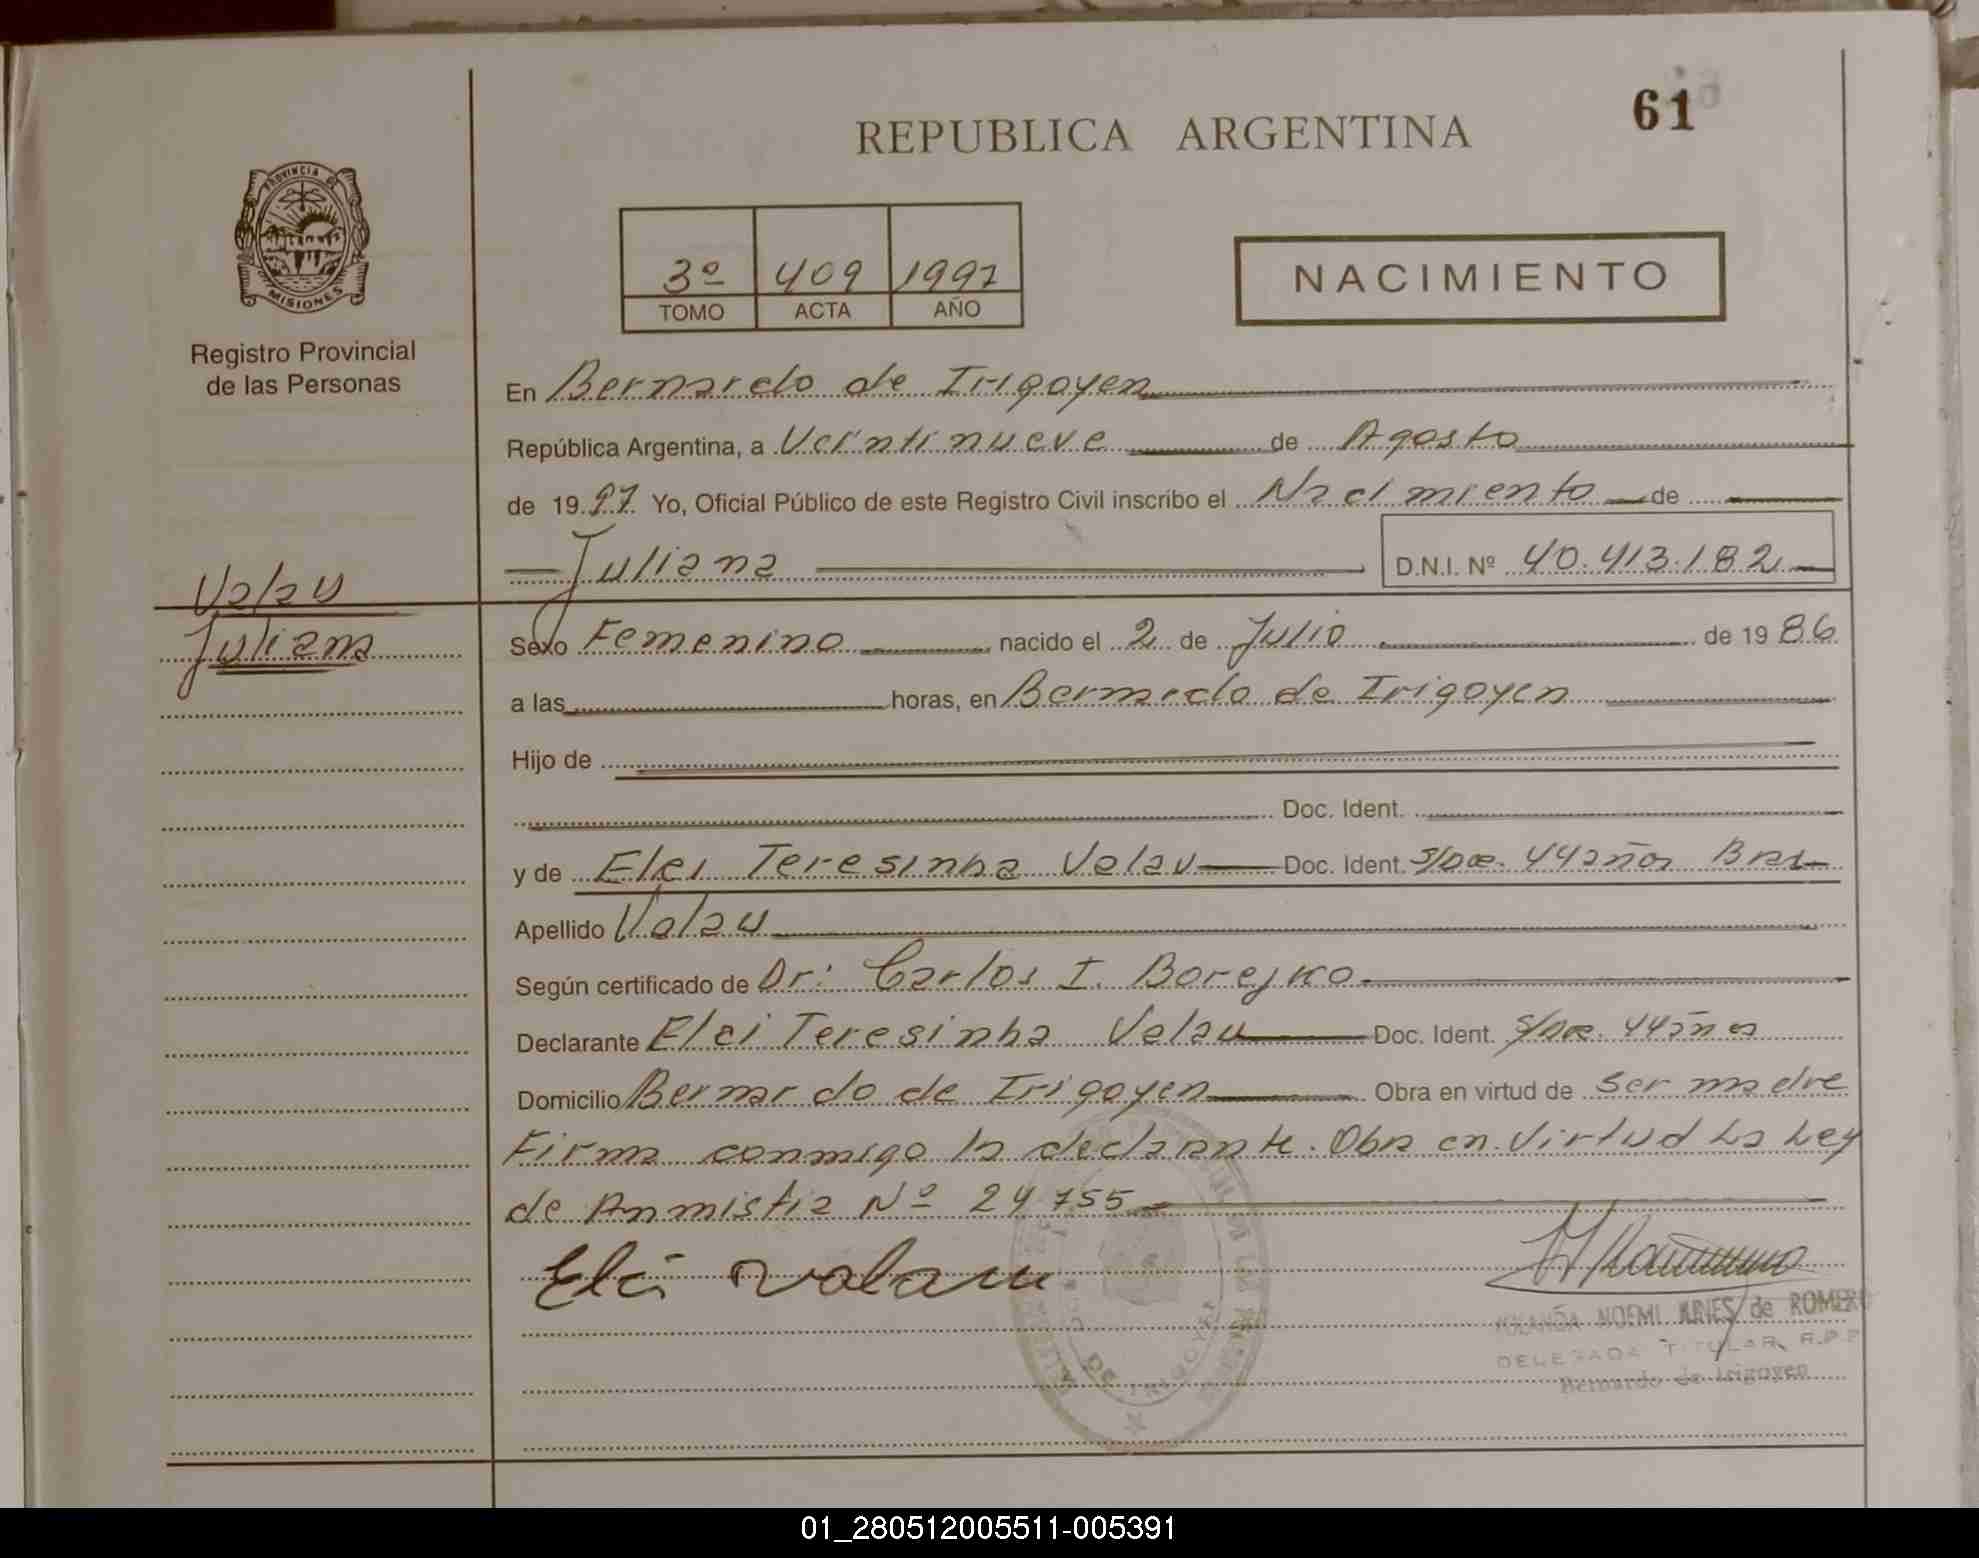 61
REPUBLICA ARGENTINA
PROVINCIA DE
MISIONES
Registro Provincial
de las Personas
3º 409 1997
TOMO ACTA AÑO
NACIMIENTO
En Bernardo de Irigoyen
República Argentina, a Veintinueve de Agosto
de 19 97 Yo, Oficial Público de este Registro Civil inscribo el Nacimiento de
Juliana D.N.I. Nº 40.413.182
Valau
Juliana
Sexo Femenino nacido el 2 de Julio de 19 86
a las horas, en Bernardo de Irigoyen
Hijo de
Doc. Ident.
y de Elci Teresinha Valau Doc. Ident. S/Doc. 44 años Bras
Apellido Valau
Según certificado de Dr: Carlos I. Borejko
Declarante Elci Teresinha Valau Doc. Ident. S/Doc. 44 años
Domicilio Bernardo de Irigoyen Obra en virtud de ser madre
Firma conmigo la declarante. Obra en virtud La Ley
de Anmistia Nº 24755
Elci valau
YOLANDA NOEMI de ROMERO
DELEGADA TITULAR R.P.P
Bernardo de Irigoyen
01_280512005511-005391